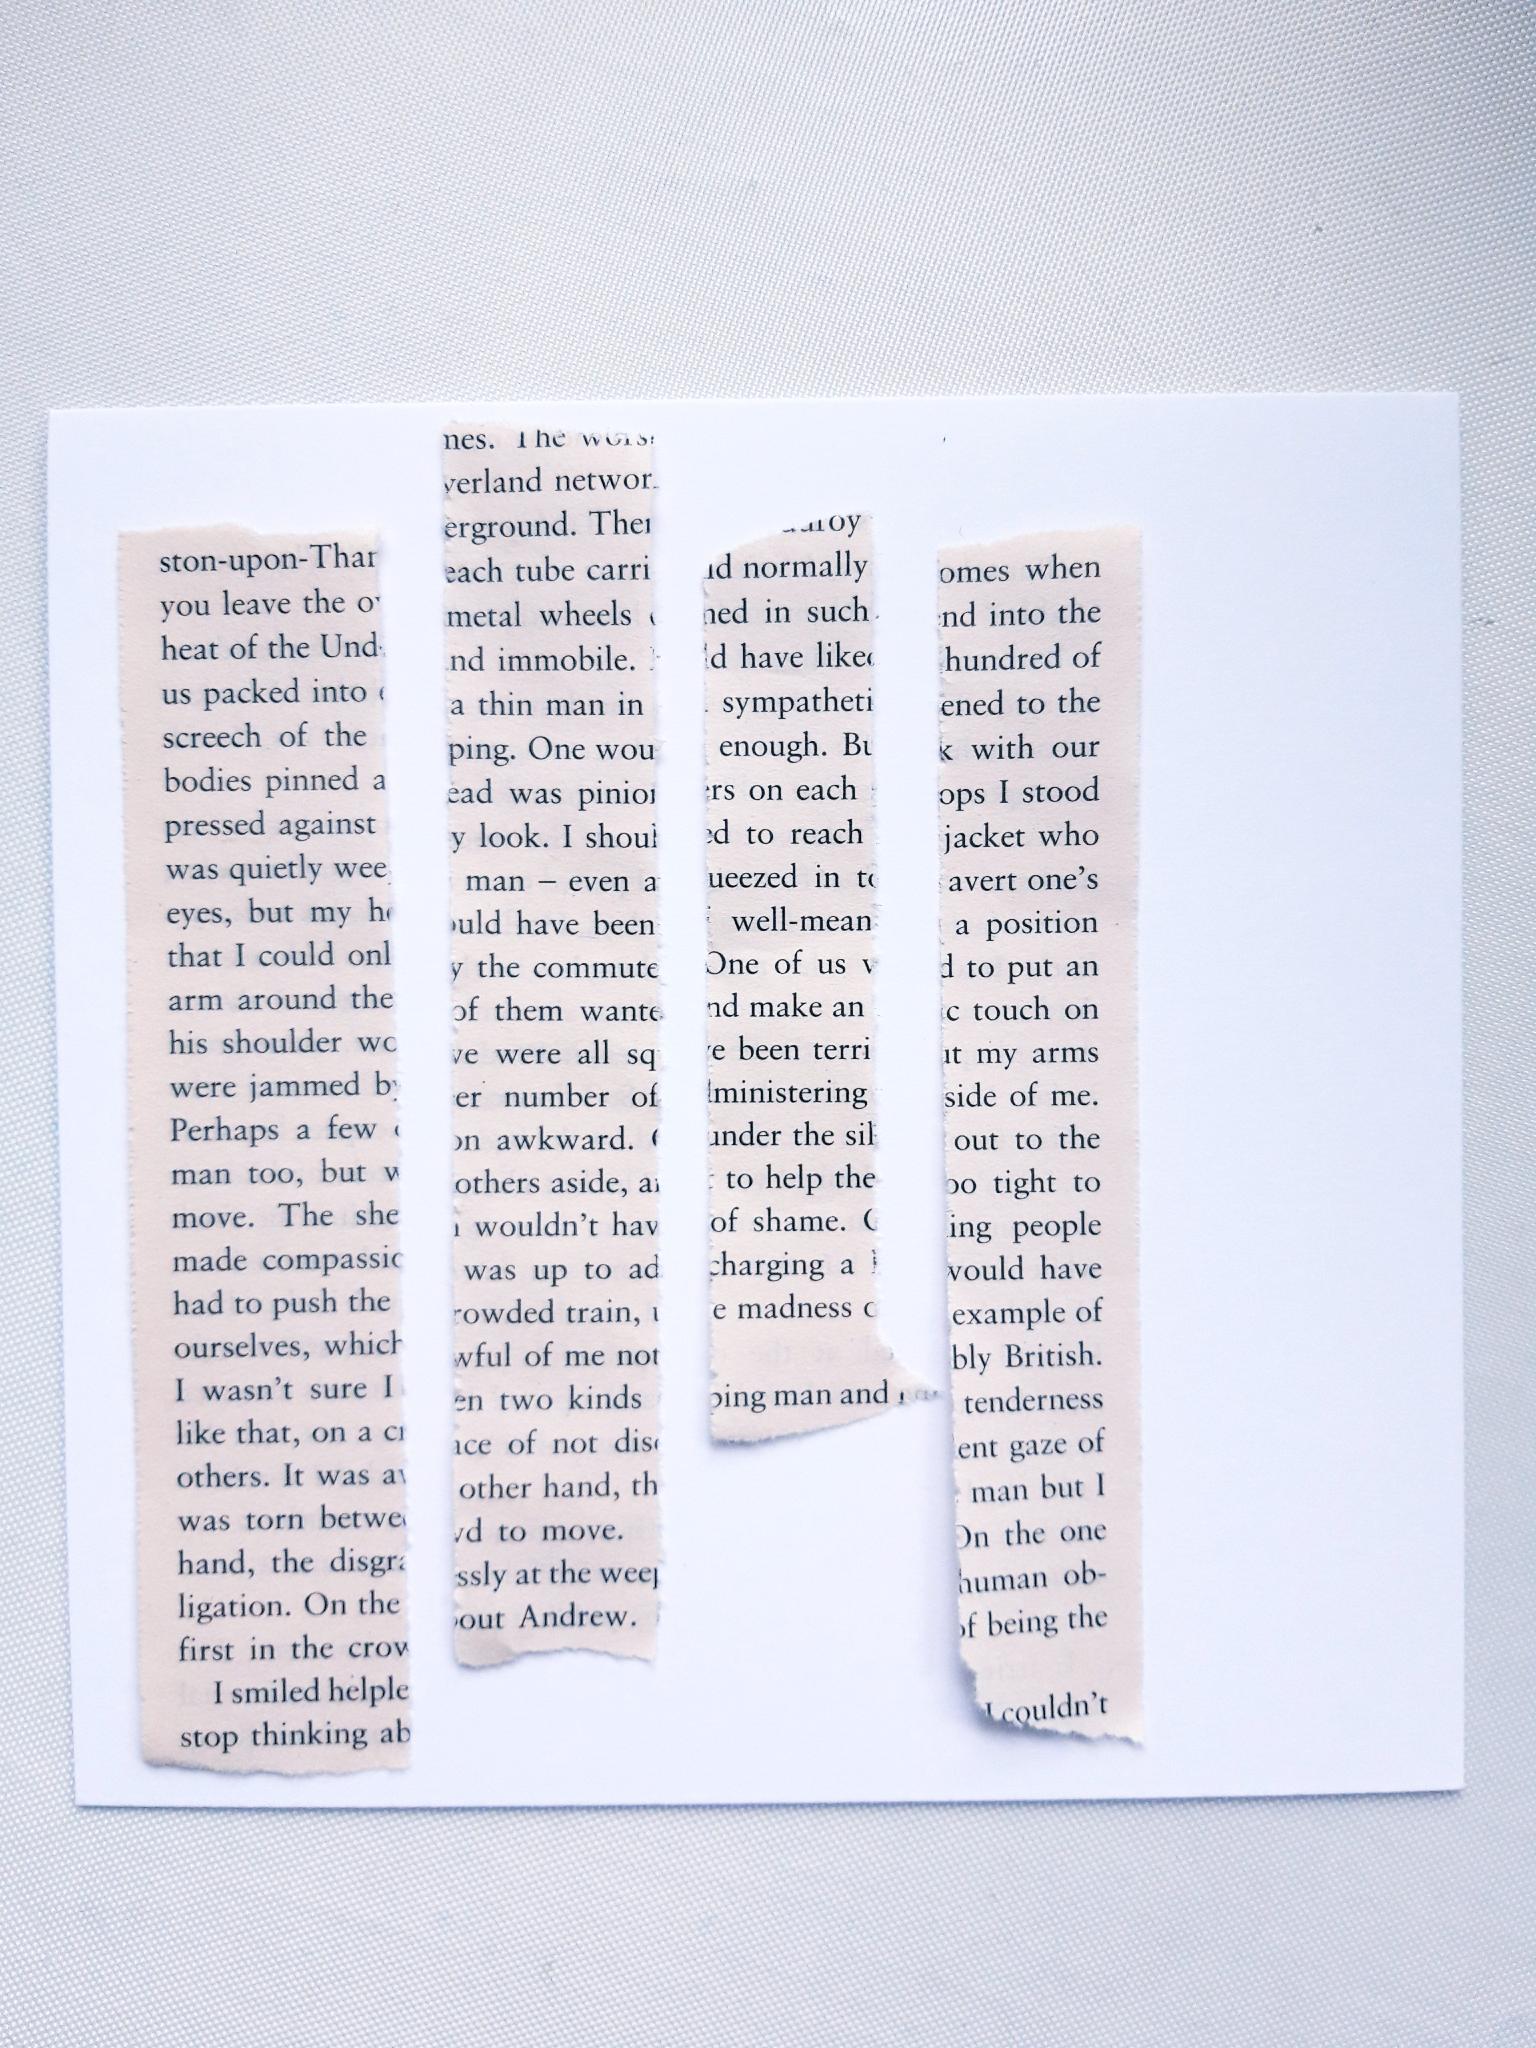 ston-upon-Than
you leave the o
heat of the Und
us packed into
screech of the
bodies pinned a
pressed against
was quietly wee
eyes, but my he
that I could onl
arm around the
his shoulder wo
were jammed by
Perhaps a few
man too, but w
move. The she
made compassio
had to push the
ourselves, which
I wasn't sure I
like that, on a cr
others. It was aw
was torn betwee
hand, the disgra
ligation. On the
first in the crow
I smiled helple
stop thinking ab
mes. The worst
verland networ
erground. Ther
each tube carri
metal wheels
nd immobile.
a thin man in
ping. One wou
ead was pinion
y look. I shoul
man – even a
ould have been
y the commute
of them wante
we were all sq
er number of
on awkward.
others aside, an
n wouldn't hav
was up to ad
rowded train, u
wful of me not
en two kinds
ace of not disc
other hand, th
wd to move.
ssly at the weep
bout Andrew.
uroy
nd normally
ned in such
ld have liked
sympatheti
enough. Bu
ers on each
ed to reach
ueezed in to
well-mean
One of us w
nd make an
ve been terri
dministering
under the sil
to help the
of shame. O
charging a h
e madness o
ping man and
omes when
end into the
hundred of
ened to the
k with our
ops I stood
jacket who
avert one's
a position
d to put an
c touch on
ut my arms
side of me.
out to the
oo tight to
ing people
would have
example of
bly British.
tenderness
ent gaze of
man but I
On the one
human ob-
of being the
I couldn't